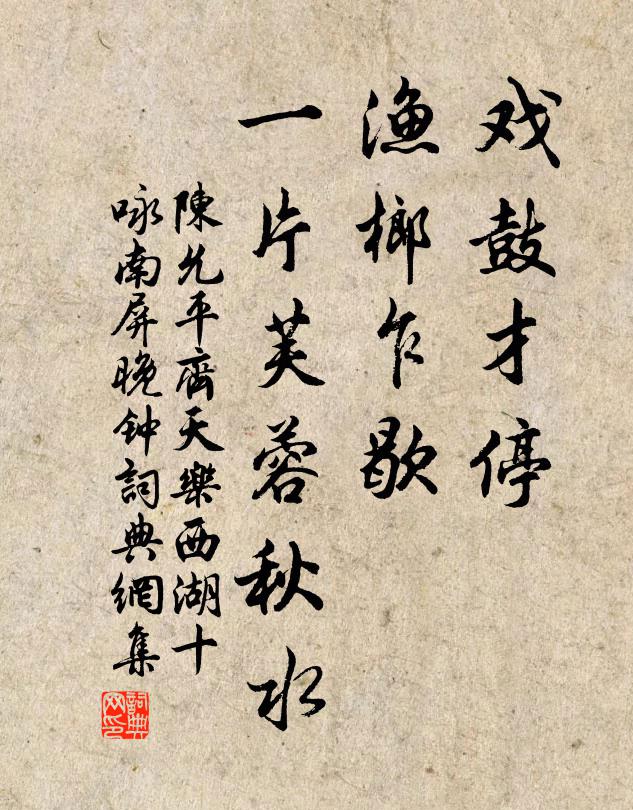 戏鼓才停
渔榔乍歇
一片芙蓉秋水
陳允平齊天樂西湖十
咏南屏晚钟詞典網集
詞典网印